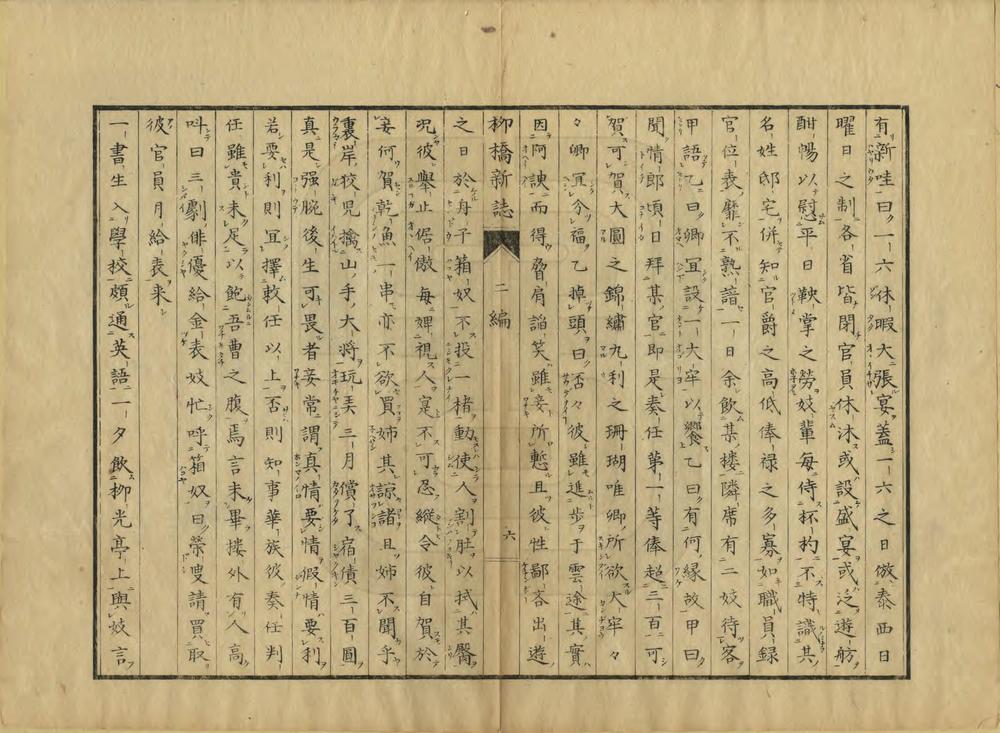 有新哇曰一六休暇大張宴蓋一六之日倣泰西日
曜日之制各省皆閉官員休沐或設盛宴或泛遊舫
酣暢以慰平日鞅掌之勞妓輩每侍杯杓不特識其
名姓邸宅併知官爵之高低俸祿之多寡如職員録
官位表靡不熟諳一日余飲某樓隣席有二妓待客
甲語乙曰卿冝設一大牢以饗乙曰有何縁故甲曰
聞情郎頃日拜某官即是奏任第一等俸超三百可
賀可賀大圓之錦繡九利之珊瑚唯卿所欲大牢々
々卿冝分福乙掉頭曰否々彼雖進歩于雲途其實
因阿諛而得脅肩謟笑雖妾所慙且彼性鄙吝出遊
柳橋新誌 二編 六
之日於舟子箱奴不投一楮動使人割肚以拭其臀
况彼擧止倨傲每婢視人寔不可忍縱令彼自賀於
妾何賀乾魚一串亦不欲買姉其諒諸且姉不聞乎
裏岸狡児擒山手大将玩弄三月償了宿債三百圓
真是强腕後生可畏者妾常謂真情要情假情要利
若要利則冝擇敕任以上否則知事華族彼奏任判
任雖貴未足以飽吾曹之腹焉言未畢搂外有人高
叫曰三劇俳優給金表妓忙呼箱奴曰榮叟請買取
彼官員月給表来
一書生入學校頗通英語一夕飲柳光亭上與妓言